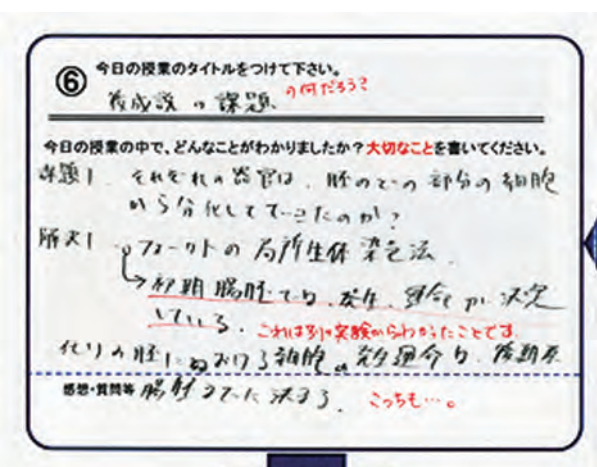 ⑥ 今日の授業のタイトルをつけて下さい。
後成説の課題 の何だろう?
今日の授業の中で、どんなことがわかりましたか?大切なことを書いてください。
課題1. それぞれの器官は、胚のどの部分の細胞
から分化してできたのか?
解決1 フォークトの局所生体染色法
→初期腸胚では、発生運命が決定
している。 これは別の実験からわかったことです。
イモリの胚における細胞の発生運命は、後期原
感想・質問等 腸胚までに決まる。 こっちも…。